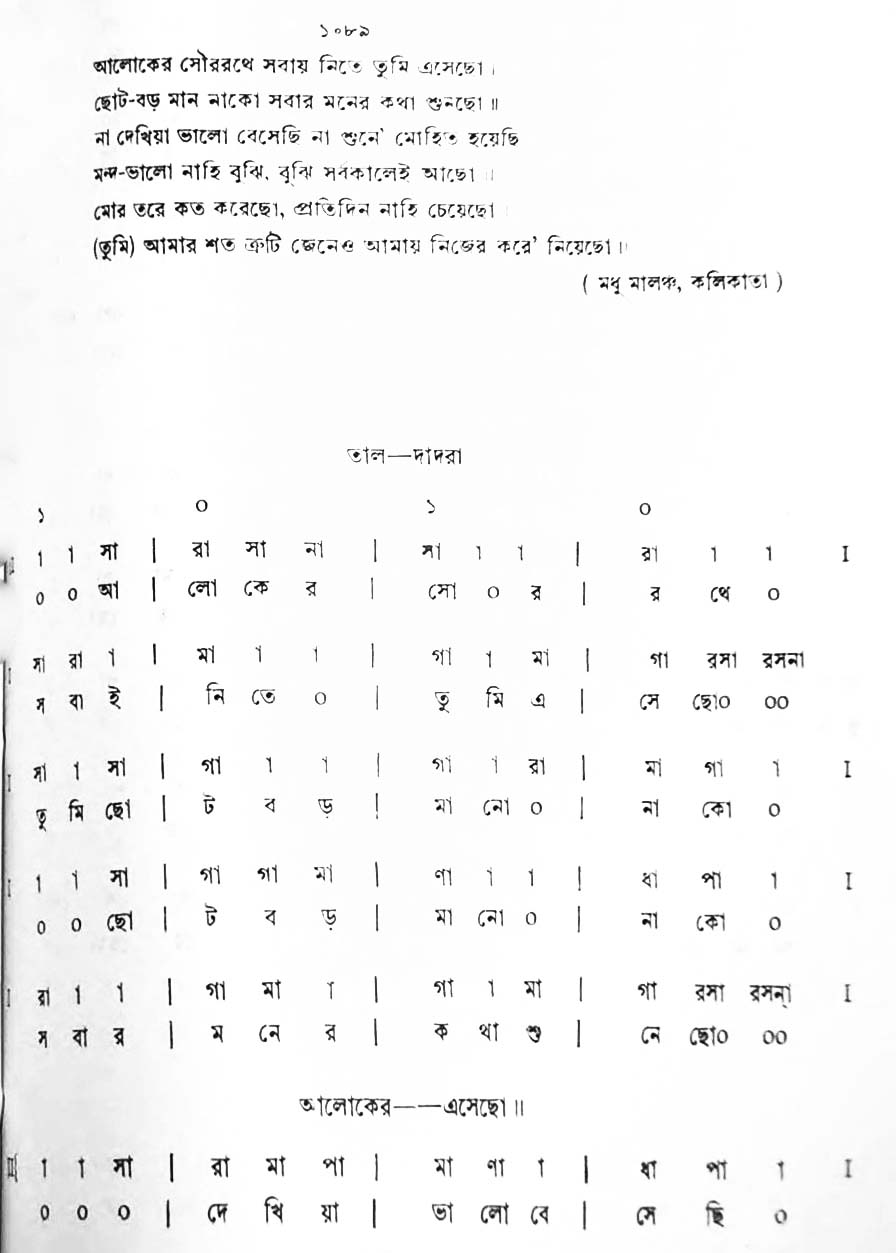 ১০৮৯
আলোকের সৌররথে সবায় নিতে তুমি এসেছো।
ছোট-বড় মান নাকো সবার মনের কথা শুনছো॥
না দেখিয়া ভালো বেসেছি না শুনে' মোহিত হয়েছি
মন্দ-ভালো নাহি বুঝি, বুঝি সর্বকালেই আছো॥
মোর তরে কত করেছো, প্রতিদিন নাহি চেয়েছো।
(তুমি) আমার শত ত্রুটি জেনেও আমায় নিজের করে' নিয়েছো॥
( মধু মালঞ্চ, কলিকাতা )
তাল—দাদরা
১ ০ ১ ০
া া সা | রা সা না | সা া া | রা া া I
০ ০ আ | লো কে র | সৌ ০ র | র থে ০
সা রা া | মা া া | গা া মা | গা রসা রসনা
স বা ই | নি তে ০ | তু মি এ | সে ছো০ ০০
I সা া সা | গা া া | গা া রা | মা গা া I
তু মি ছো | ট ব ড় | মা নো ০ | না কো ০
I া া সা | গা গা মা | ণা া া | ধা পা া I
০ ০ ছো | ট ব ড় | মা নো ০ | না কো ০
I রা া া | গা মা া | গা া মা | গা রসা রসন্া I
স বা র | ম নে র | ক থা শু | নে ছো০ ০০
আলোকের——এসেছো॥
II া া সা | রা মা পা | মা ণা া | ধা পা া I
০ ০ ০ | দে খি য়া | ভা লো বে | সে ছি ০